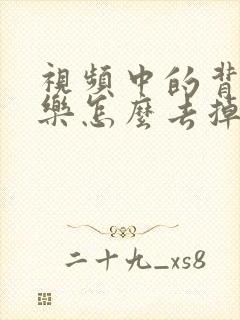 視頻中的背
樂怎麼去掉
二十九_xs8